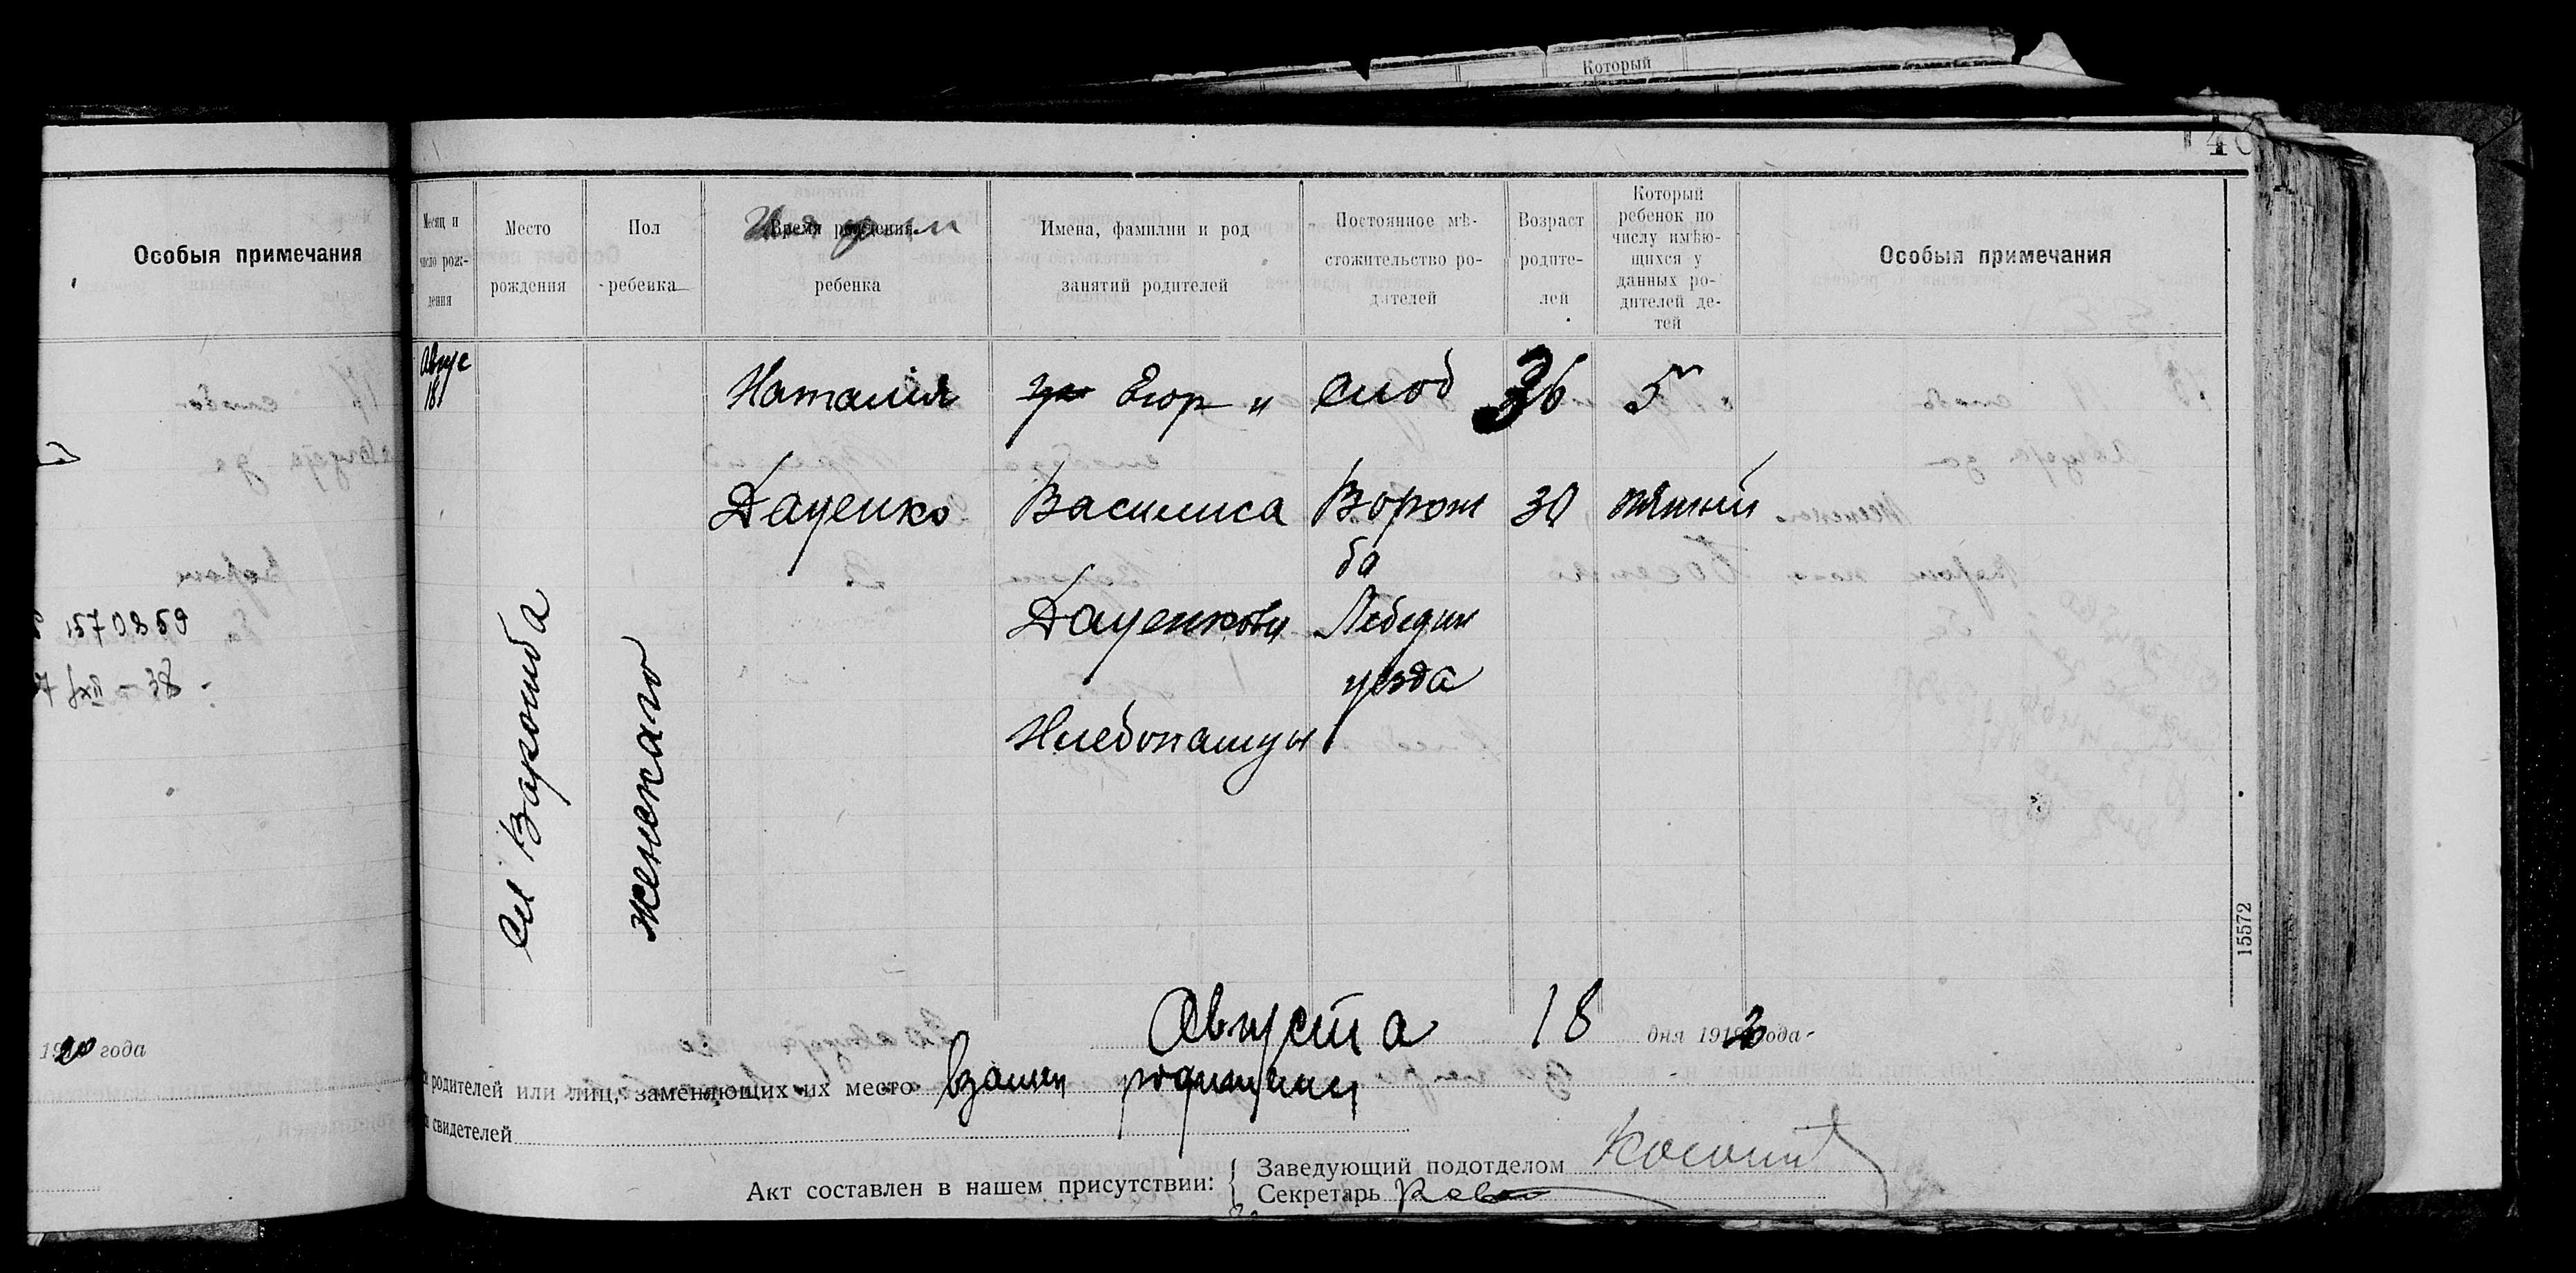 Который
Особыя примечания
1570859
- 38 -
1920 года
Месяц и число рож- дения
Место рождения
Пол ребенка
Время рождения ребенка
Имена, фамилии и род занятий родителей
Постоянное мѣ- стожительство ро- дителей
Возраст родите- лей
Который ребенок по числу имѣю- щихся у данных ро- дителей де- тей
Особыя примечания
Авгус
18
Сл Варожба
Женскаго
Наталія
Даценко
Егор и
Василиса
Даценковы
Хлебопашцы
Слоб
Ворож
ба
Лебедин
уезда
36
30
5й
пятый
15572
Августа 18 дня 1920 года
родителей или лиц, заменяющих их место
свидетелей
Акт составлен в нашем присутствии:
Заведующий подотделом
Секретарь